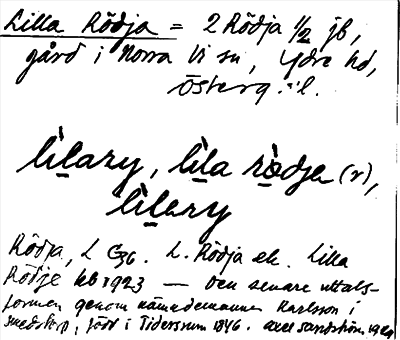 Lilla Rödja = 2 Rödja 1/2 jb,
gård i Norra Vi sn, Ydre hd,
Österg. l.
lìlary, lìla rödja (r),
lìlary
Rödja, L G36. L. Rödja el. Lilla
Rödje kb 1923 — Den senare uttals-
formen genom nämndemannen Karlsson i
Smedstorp, född i Tidersrum 1846. Axel Sandström 1924